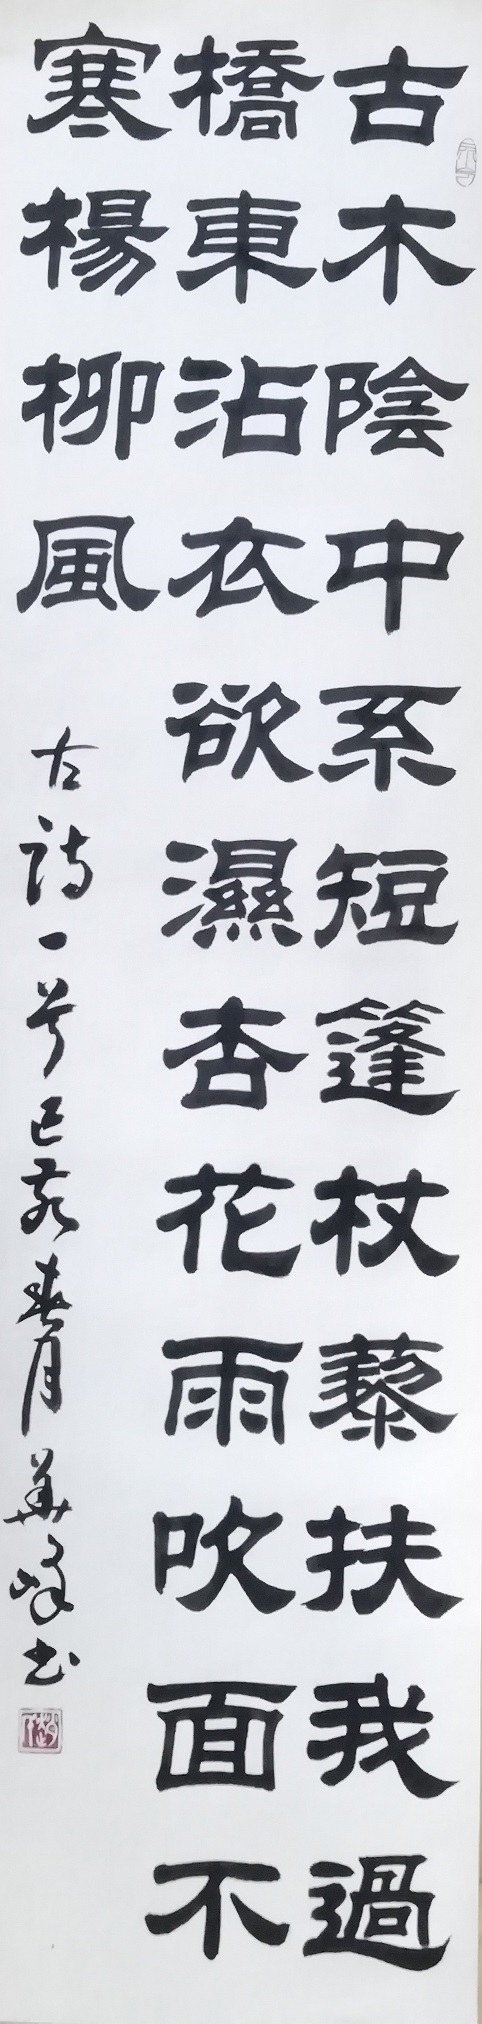 古木陰中系短篷杖藜扶我過
橋東沾衣欲濕杏花雨吹面不
寒楊柳風
古詩一首己亥春月華峰书